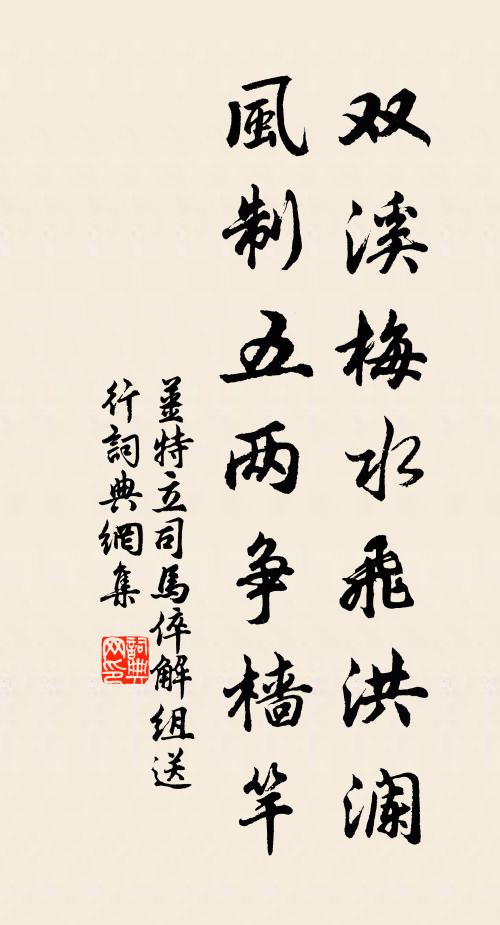 双溪梅水飛洪澜
風制五两争檣竿
薑特立司馬倅解組送
行詞典網集
詞典網印